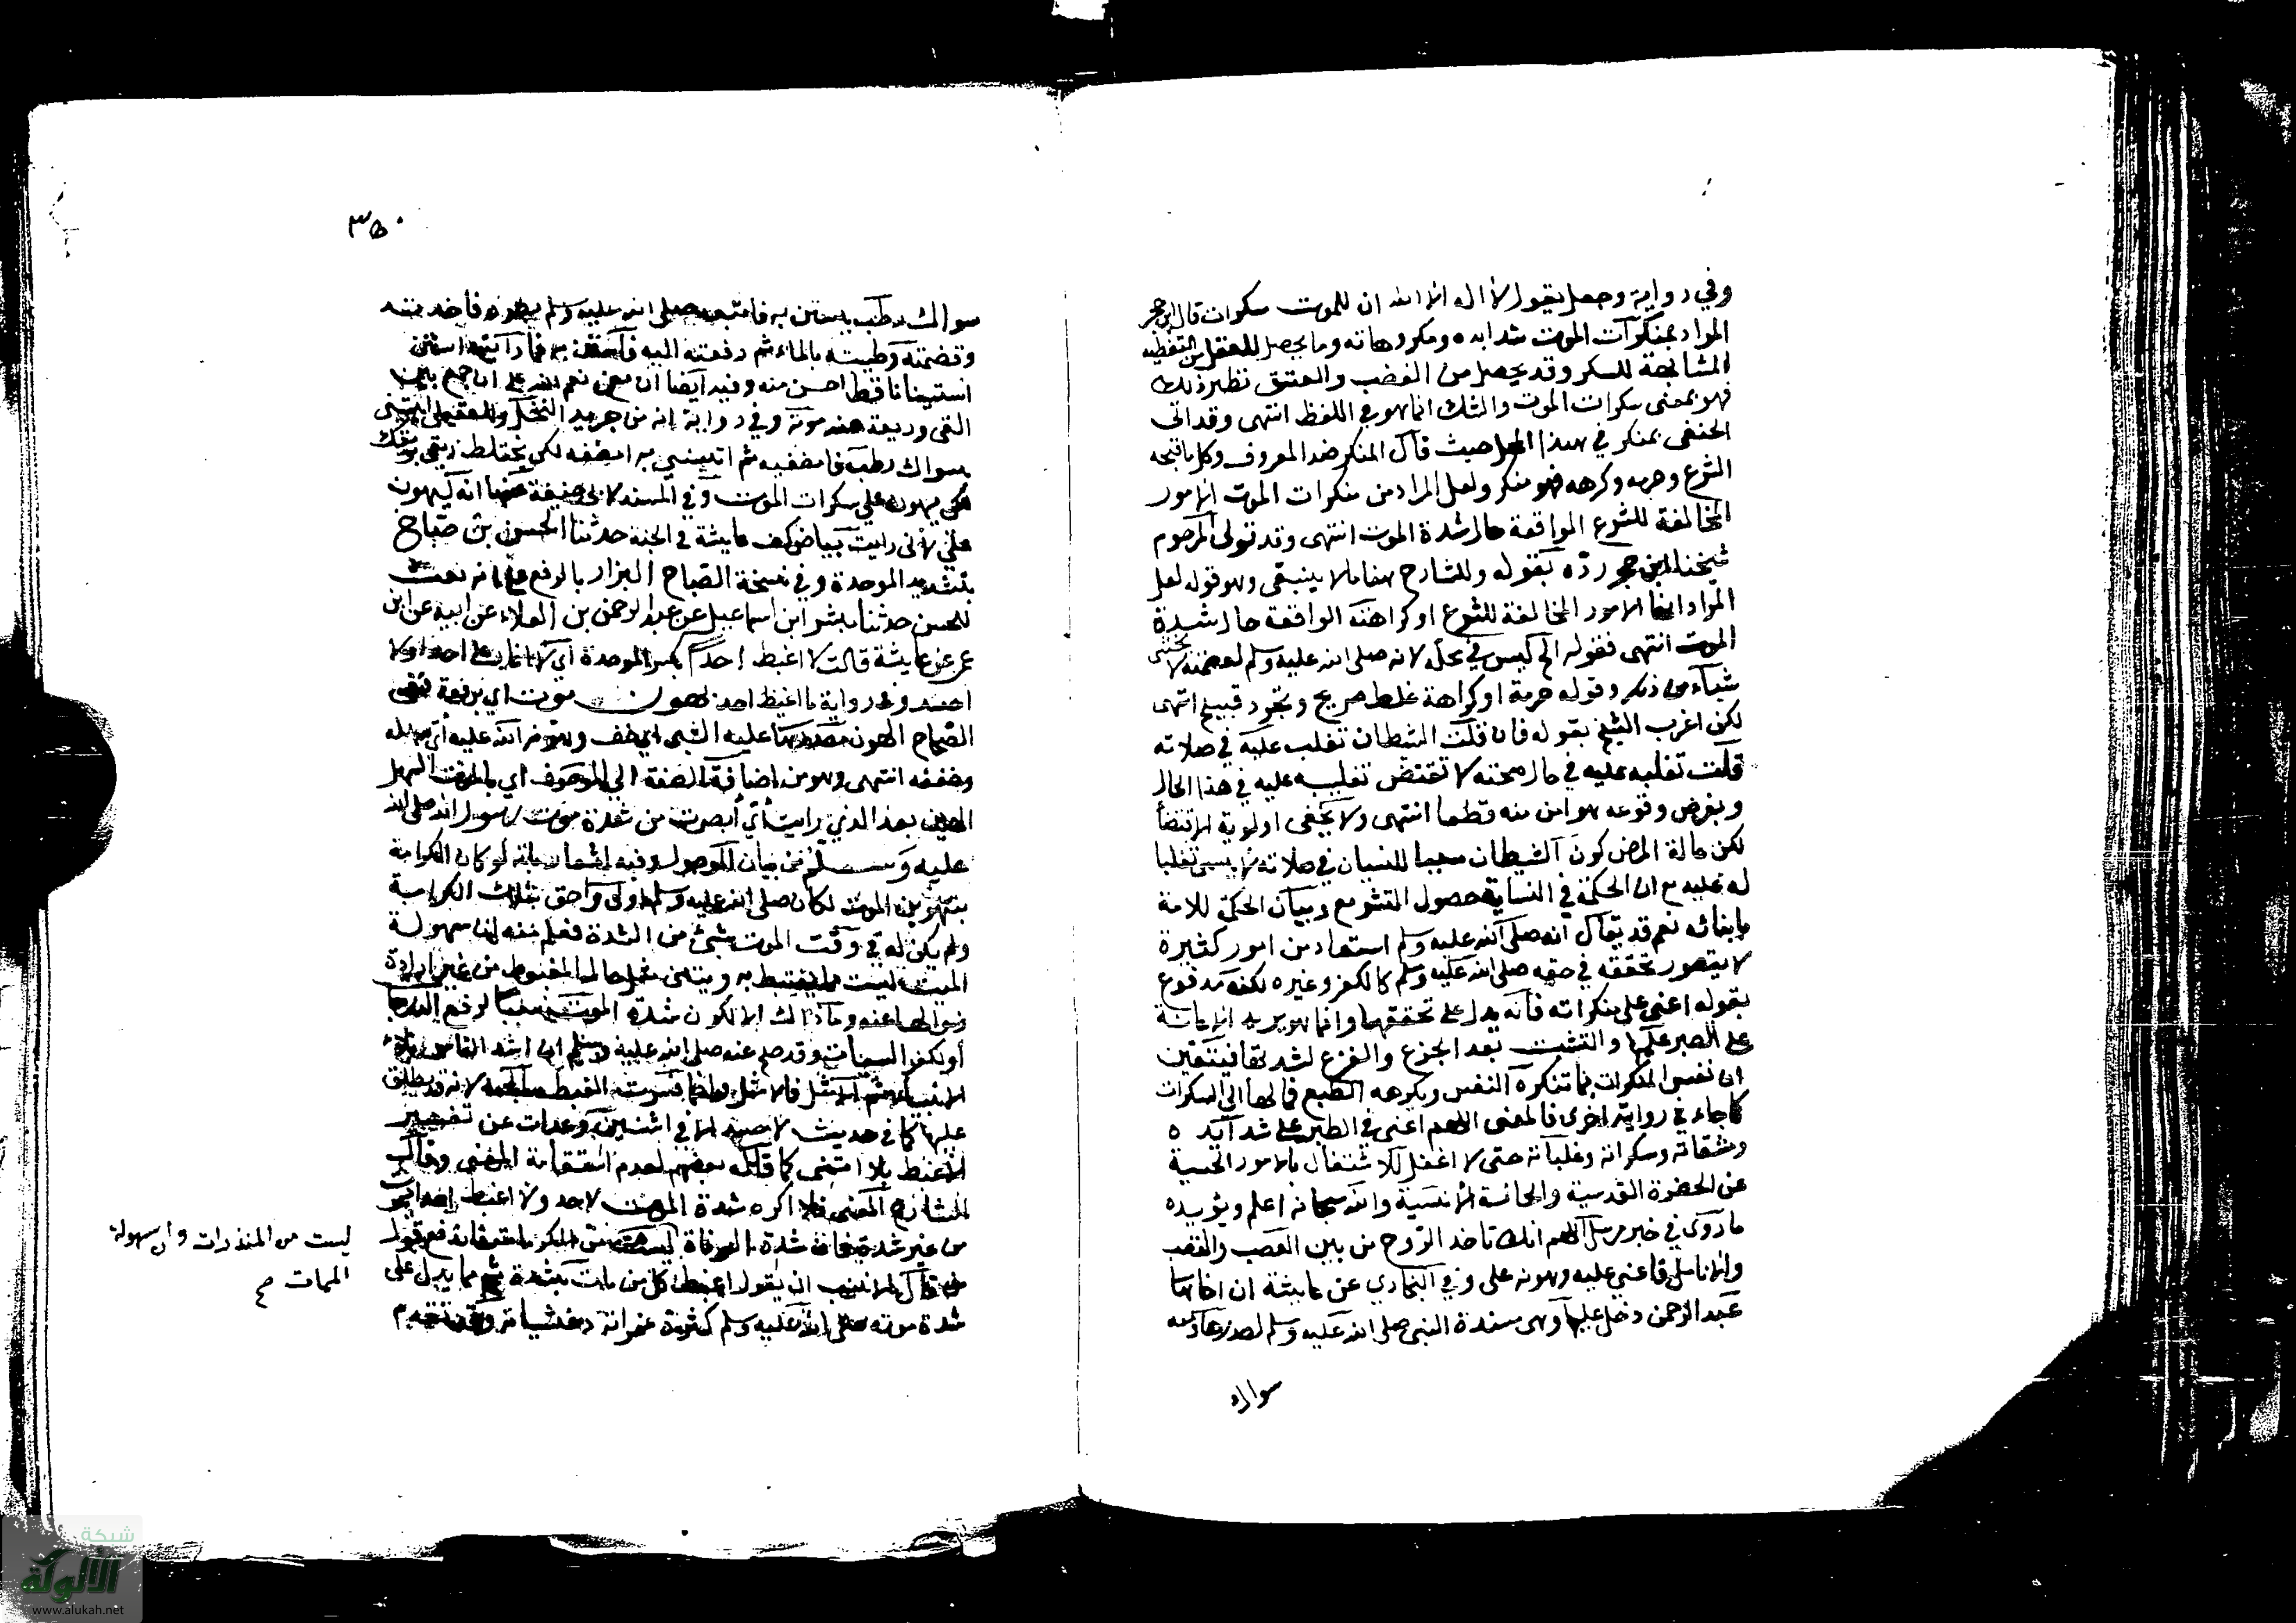 وفي رواية وجعل يقول لا اله الا الله ان للموت سكرات قال ابن حجر
المراد بمنكرات الموت شدايده ومكروهاته وما يحصل للعقل من التغطية
المشابهة للسكر وقد يحصل من الغضب والعشق نظير ذلك
فهو بمعنى سكرات الموت والشك انما هو في اللفظ انتهى وقد اتى
الحنفي بمنكر في هذا المحل حيث قال المنكر ضد المعروف وكل ما قبحه
الشرع وحرمه وكرهه فهو منكر ولعل المراد من منكرات الموت الامور
المخالفة للشرع الواقعة حال شدة الموت انتهى وقد تولى المرحوم
شيخنا ابن حجر رده بقوله وللشارح هنا ما لا ينبغي وهو قوله لعل
المراد ايضا الامور المخالفة للشرع او كراهته الواقعة حال شدة
الموت انتهى فقوله الخ ليس في محله لانه صلى الله عليه وسلم لعصمته لا يخشى
شيأ من ذلك وقوله حرمة او كراهة غلط صريح وتجرد قبيح انتهى
لكن اغرب الشيخ بقوله فان قلت الشيطان تغلب عليه في صلاته
قلت تغلبه عليه في حال صحته لا تقتضي تغلبه عليه في هذا الحال
وبفرض وقوعه هو امن منه قطعا انتهى ولا يخفى اولوية الاقتضأ
لكن حالة المرض كون الشيطان سببا للنسيان في صلاته لا يسمى تغلبا
له عليه مع ان الحكمة في انسايه حصول التشريع وبيان الحكم للامة
بابنائه نعم قد يقال انه صلى الله عليه وسلم استعاذ من امور كثيرة
لا يتصور تحققه في حقه صلى الله عليه وسلم كالكفر وغيره لكنه مدفوع
بقوله اعني على منكراته فانه يدل على تحققها وانما هو يريد الاعانة
على الصبر عليها والتثبت بعد الجزع والفزع لشدتها فيتعين
ان نفسر المنكرات بما تنكره النفس ويكرهه الطبع فمالها الى السكرات
كما جاء في رواية اخرى فالمعنى اللهم اعني في الصبر على شدايده
ومشقاته وسكراته وغلباته حتى لا اغفل للاشتغال بالامور الحسية
عن الحضرة القدسية والحالة الانسية والله سبحانه اعلم ويؤيده
ما روي في خبر مرسل اللهم انك تاخذ الروح من بين العصب والقصب
والانامل فاعني عليه وهونه على وفي البخاري عن عايشة ان اخاها
عبد الرحمن دخل عليها وهي مسندة النبي صلى الله عليه وسلم لصدرها ومعه
سواك
٣٥٠
سواك رطب يستن به فاتبعه صلى الله عليه وسلم بصره فاخذته
وقضمته وطيبته بالماء ثم دفعته اليه فاستن به فما رايته استن
استينانا قط احسن منه وفيه ايضا ان من نعم الله على ان جمع بين
ريقي وريقه عند موته وفي رواية انه من جريد النخل وللعقيلي ايتيني
بسواك رطب فامضغيه ثم ايتيني به امضغه لكي يختلط ريقي بريقك
لكي يهون علي سكرات الموت وفي المسند لابي حنيفة عنها انه ليهون
علي لاني رايت بياض كف عايشة في الجنة حدثنا الحسن بن صباح
بتشديد الموحدة وفي نسخة الصباح البزار بالرفع على انه نعت
للحسن حدثنا مبشر ابن اسماعيل عن عبد الرحمن بن العلاء عن ابيه عن ابن
عمر عن عايشة قالت لا اغبط احدا بكسر الموحدة اي لا اغار على احد ولا
احسد وفي رواية ما اغبط احد بهون موت اي برفقه ففي
الصحاح الهون مصدر هان عليه الشي اي خف وهونه الله عليه اي سهله
وخففه انتهى وهو من اضافة الصفة الى الموصوف اي بالموت السهل
الهين بعد الذي رايت اي أبصرت من شدة موت رسول الله صلى الله
عليه وسلم من بيان للموصول وفيه اشعار بانه لو كان الكرامة
بتهوين الموت لكان صلى الله عليه وسلم اولى واحق بتلك الكرامة
ولم يكن له في وقت الموت شئ من الشدة فعلم منه ان سهولة
الموت ليست مما يغتبط به ويتمنى مثل حال المغبوط من غير ارادة
زوالها عنه وما ذلك الا لكون شدة الموت سببا لرفع الدرجات
او لكفر السيات وقد صح عنه صلى الله عليه وسلم ان اشد الناس بلاء
الانبياء ثم الامثل فالامثل وانما فسرت الغبط بالحسد لانه قد يطلق
عليها كما في حديث لا حسد الا في اثنتين وعدلت عن تفسير
الاغبط بلا اتمنى كما قاله بعضهم لعدم استقامة المعنى وقال
الشارح المعنى فلا اكره شدة الموت لاحد ولا اغبط احدا يموت
من غير شدة فان شدة الوفاة ليست من المكرهات فاندفع قول
من قال الانسب ان يقول اغبط كل من مات بشدة ثم مما يدل على
شدة موته صلى الله عليه وسلم كثرة غمراته وغشياته وقد تقدم
ليست من المنذرات وان سهولة
الممات
شبكة
الألوكة
www.alukah.net